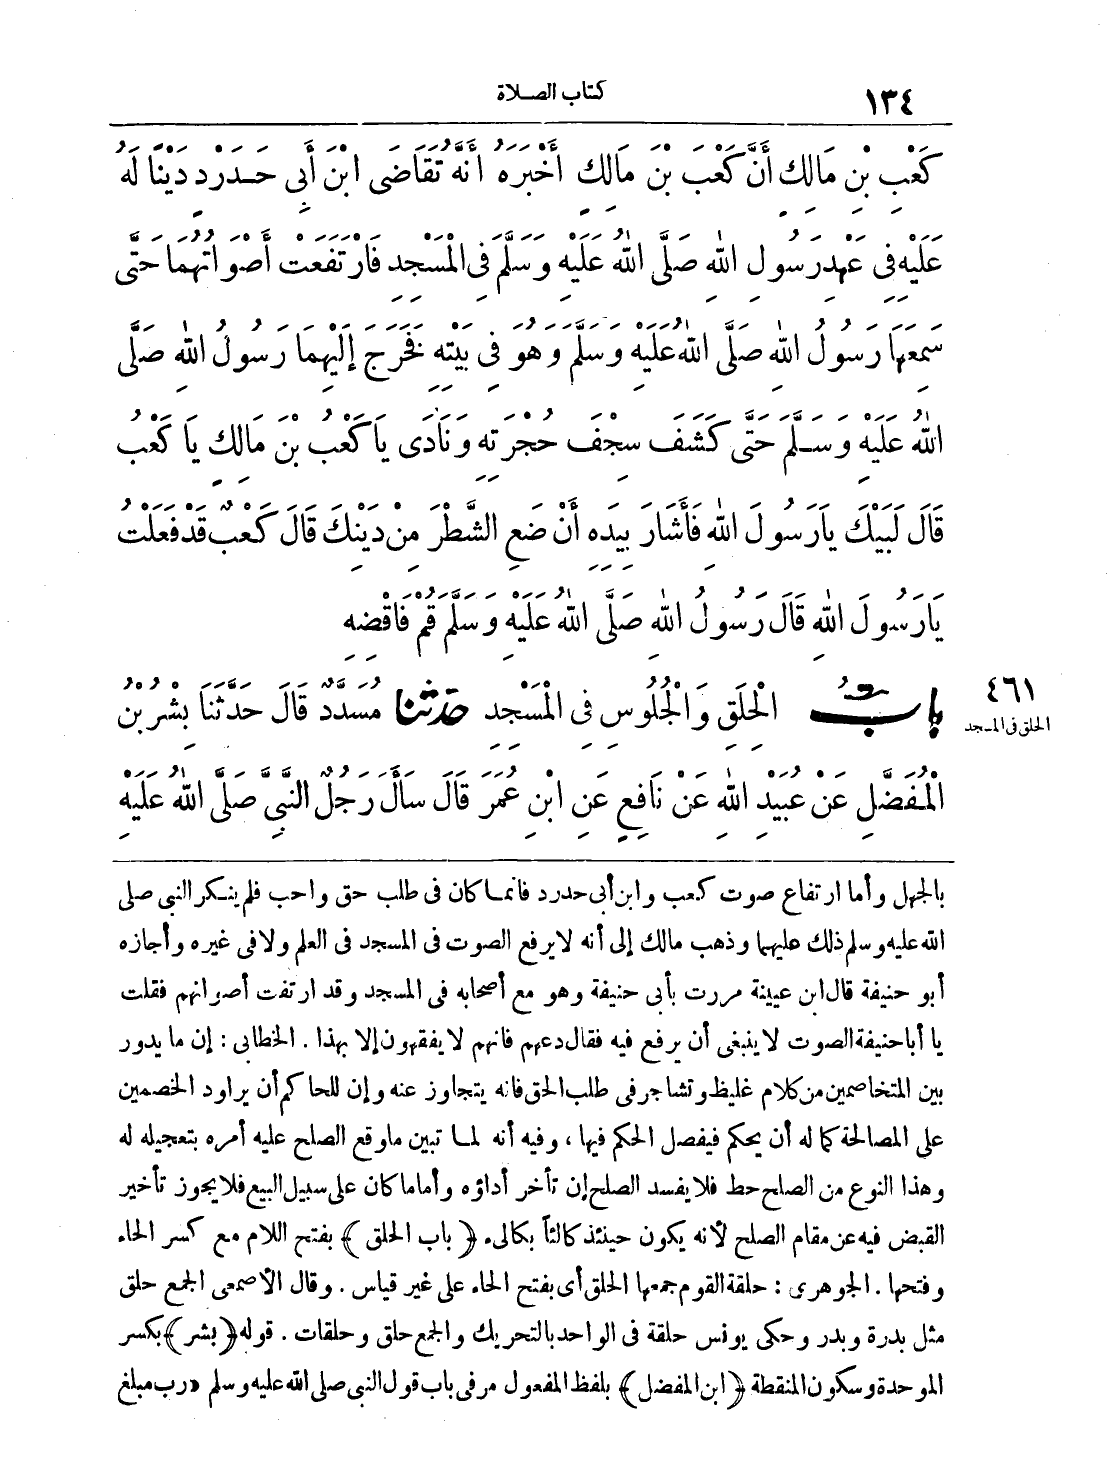 ١٣٤
كتاب الصلاة
كَعْبِ بْنِ مَالِكٍ أَنَّ كَعْبَ بْنَ مَالِكٍ أَخْبَرَهُ أَنَّهُ تَقَاضَى ابْنَ أَبِي حَدْرَدٍ دَيْنًا لَهُ
عَلَيْهِ فِي عَهْدِ رَسُولِ اللهِ صَلَّى اللهُ عَلَيْهِ وَسَلَّمَ فِي الْمَسْجِدِ فَارْتَفَعَتْ أَصْوَاتُهُمَا حَتَّى
سَمِعَهَا رَسُولُ اللهِ صَلَّى اللهُ عَلَيْهِ وَسَلَّمَ وَهُوَ فِي بَيْتِهِ فَخَرَجَ إِلَيْهِمَا رَسُولُ اللهِ صَلَّى
اللهُ عَلَيْهِ وَسَلَّمَ حَتَّى كَشَفَ سِجْفَ حُجْرَتِهِ وَنَادَى يَا كَعْبُ بْنَ مَالِكٍ يَا كَعْبُ
قَالَ لَبَيْكَ يَا رَسُولَ اللهِ فَأَشَارَ بِيَدِهِ أَنْ ضَعِ الشَّطْرَ مِنْ دَيْنِكَ قَالَ كَعْبٌ قَدْ فَعَلْتُ
يَا رَسُولَ اللهِ قَالَ رَسُولُ اللهِ صَلَّى اللهُ عَلَيْهِ وَسَلَّمَ قُمْ فَاقْضِهِ
بَابُ الْحِلَقِ وَالْجُلُوسِ فِي الْمَسْجِدِ حَدَّثَنَا مُسَدَّدٌ قَالَ حَدَّثَنَا بِشْرُ بْنُ
٤٦١
الحلق في المسجد
الْمُفَضَّلِ عَنْ عُبَيْدِ اللهِ عَنْ نَافِعٍ عَنِ ابْنِ عُمَرَ قَالَ سَأَلَ رَجُلٌ النَّبِيَّ صَلَّى اللهُ عَلَيْهِ
بالجهل وأما ارتفاع صوت كعب وابن أبى حدرد فانما كان فى طلب حق واجب فلم ينكر النبى صلى
الله عليه وسلم ذلك عليهما وذهب مالك إلى أنه لا يرفع الصوت فى المسجد فى العلم ولا فى غيره وأجازه
أبو حنيفة قال ابن عيينة مررت بأبى حنيفة وهو مع أصحابه فى المسجد وقد ارتفعت أصواتهم فقلت
يا أبا حنيفة الصوت لا ينبغى أن يرفع فيه فقال دعهم فانهم لا يفقهون إلا بهذا . الخطابى : إن ما يدور
بين المتخاصمين من كلام غليظ وتشاجر فى طلب الحق فانه يتجاوز عنه وإن للحاكم أن يراود الخصمين
على المصالحة كما له أن يحكم فيفصل الحكم فيها ، وفيه أنه لما تبين ما وقع الصلح عليه أمره بتعجيله له
وهذا النوع من الصلح حط فلا يفسد الصلح إن تأخر أداؤه وأما ما كان على سبيل البيع فلا يجوز تأخير
القبض فيه عن مقام الصلح لأنه يكون حينئذ كالئاً بكالىء ﴿ باب الحلق ﴾ بفتح اللام مع كسر الحاء
وفتحها . الجوهرى : حلقة القوم جمعها الحلق أى بفتح الحاء على غير قياس . وقال الأصمعى الجمع حلق
مثل بدرة وبدر وحكى يونس حلقة فى الواحد بالتحريك والجمع حلق وحلقات . قوله ﴿ بشر ﴾ بكسر
الموحدة وسكون المنقطة ﴿ ابن المفضل ﴾ بلفظ المفعول مر فى باب قول النبى صلى الله عليه وسلم «رب مبلغ